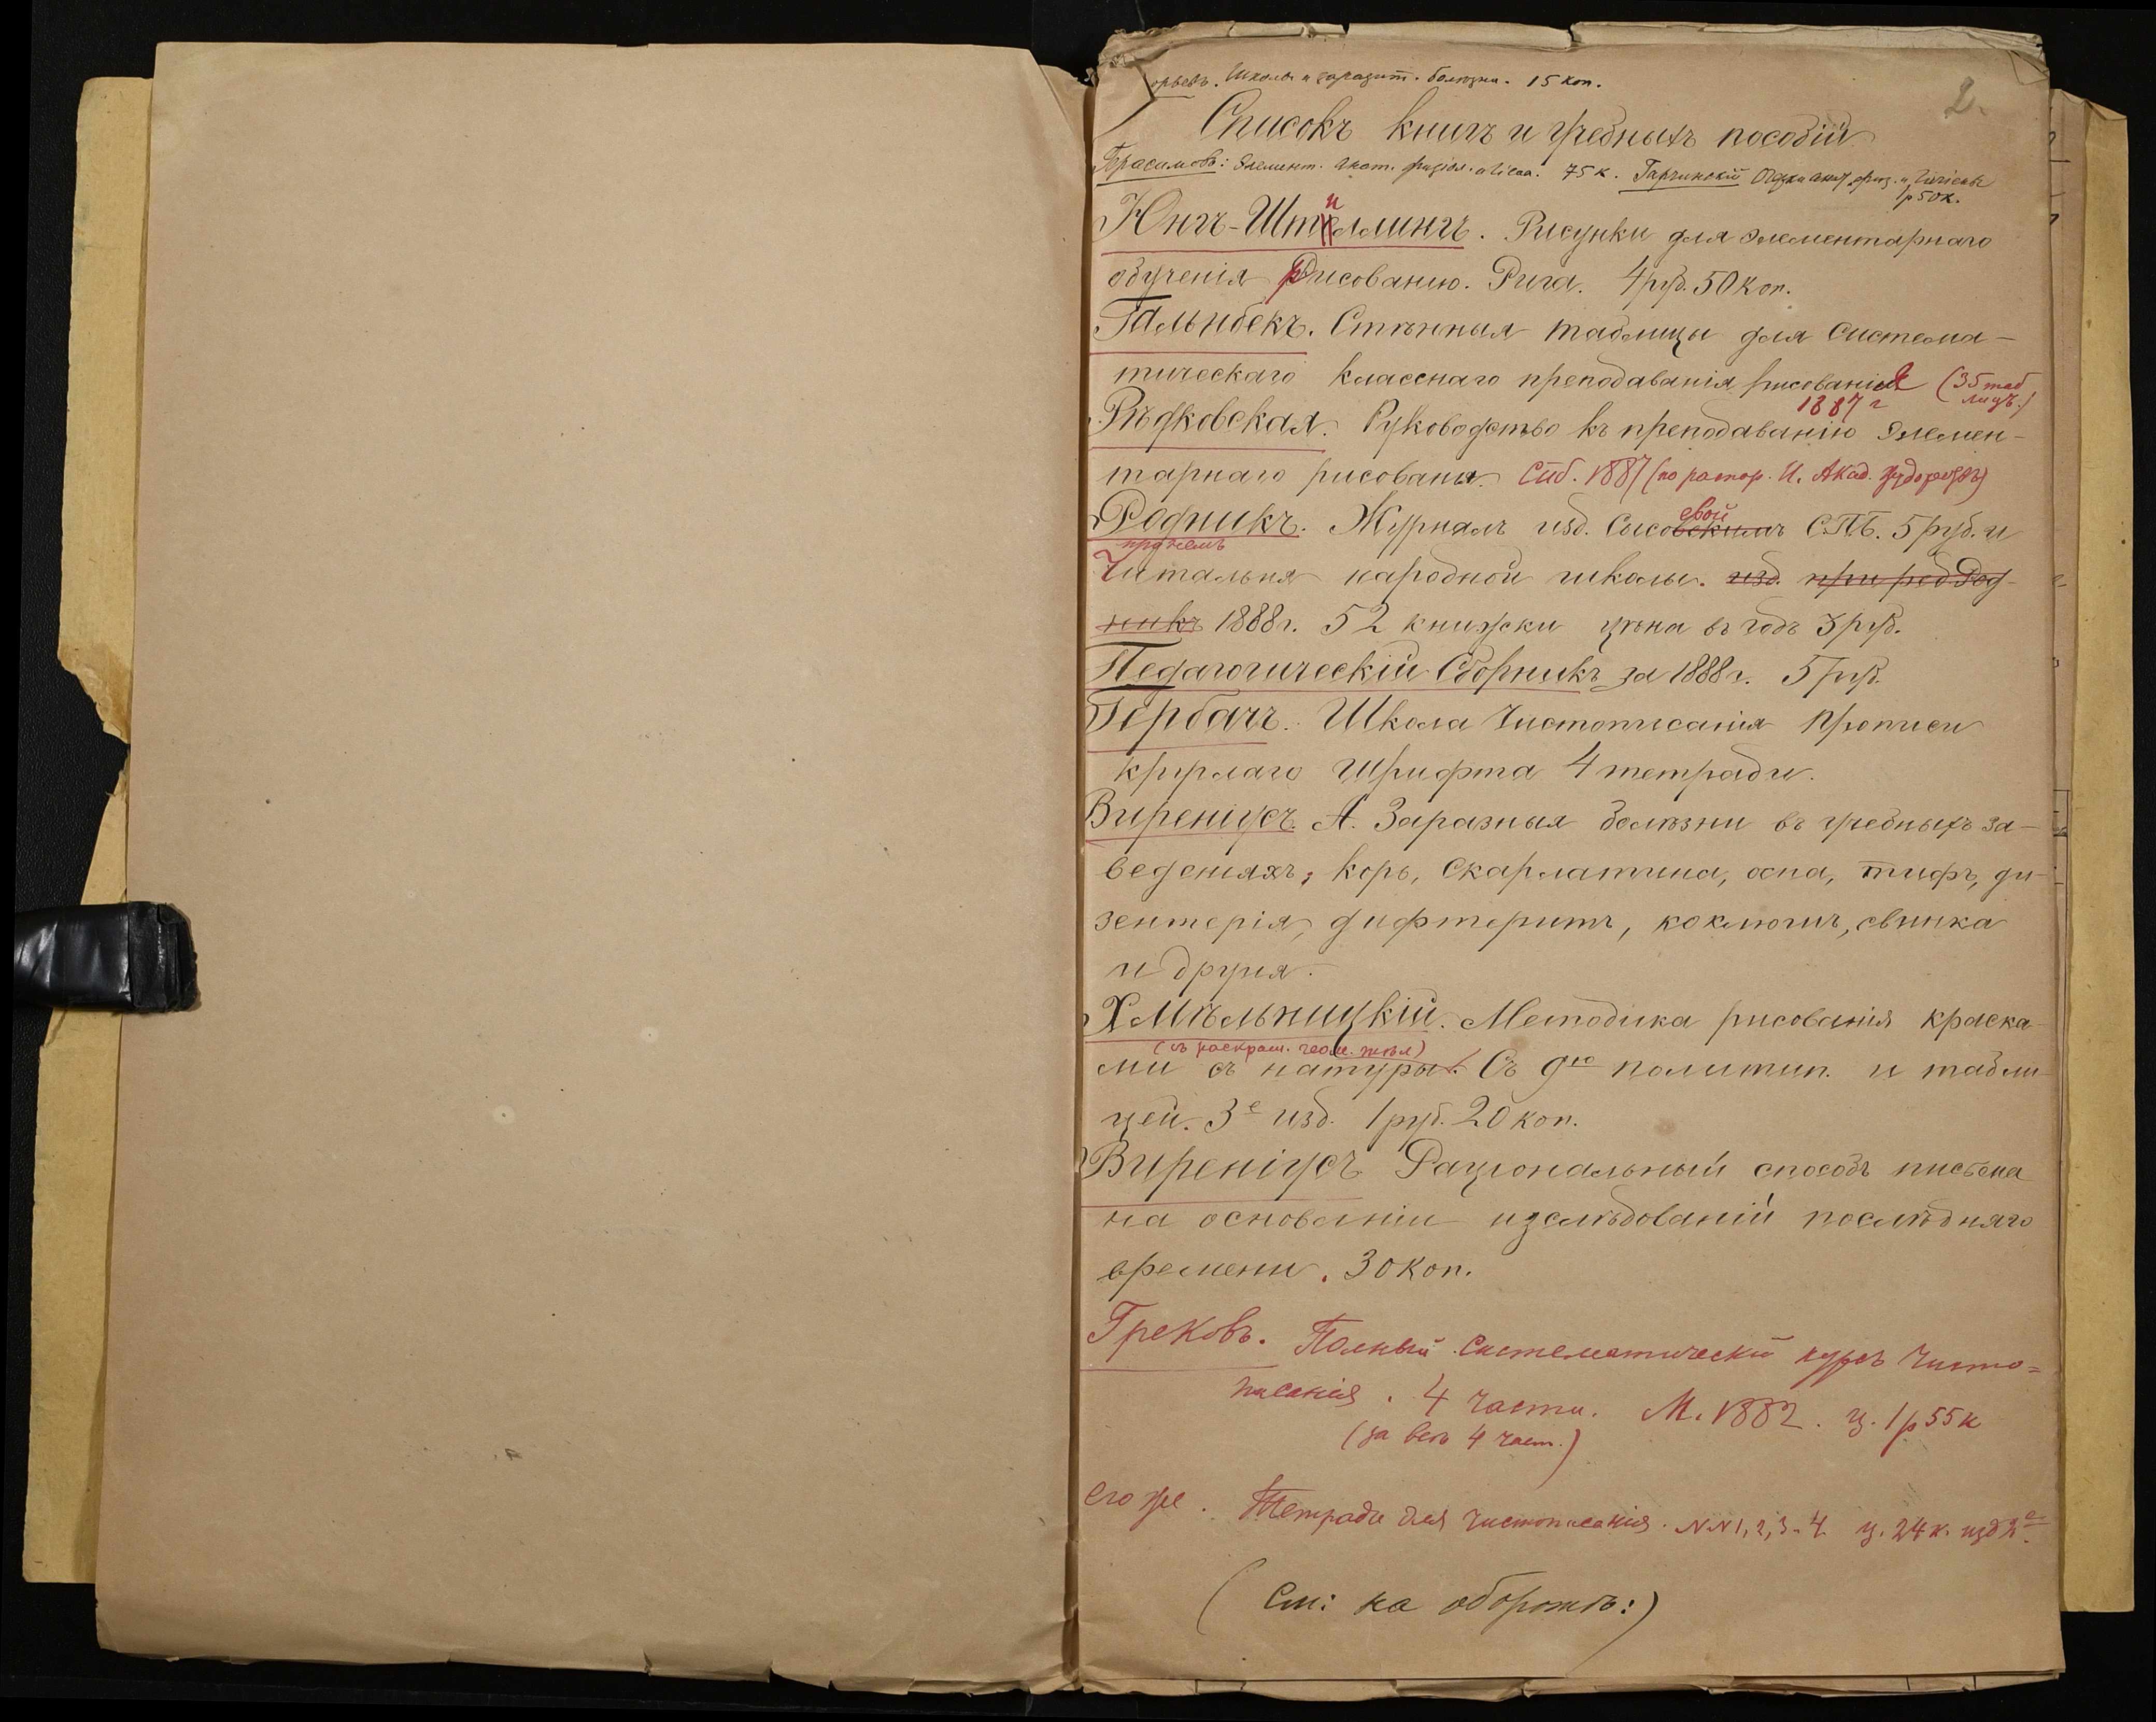 орьевъ. Школы и паразит. болѣзни. 15 коп.
2.
Списокъ книгъ и учебныхъ пособій
Герасимовъ: Элемент. анат. физіол. 75 к. Гарчинскій физ. и гигіены
1р 50к.
и
Юнгъ-Штиллингъ. Рисунки для элементарнаго
обученія рисованію. Рига. 4 руб. 50 коп.
Гальнбекъ. Стѣнныя таблицы для система-
тическаго класснаго преподаванія рисованія (35 таб
лицъ.)
1887 г
Рѣдковская. Руководство къ преподаванію элемен-
тарнаго рисованія. Спб. 1887 (по распор. И. Акад. художествъ)
евой
Родникъ. Журналъ изд. Сысовскимъ С.П.Б. 5 руб. и
при немъ
Читальня народной школы. изд. при ред. Род-
никъ 1888 г. 52 книжки цѣна въ годъ 3 руб.
Педагогическій Сборникъ за 1888 г. 5 руб.
Гербачъ. Школа чистописанія прописи
круглаго шрифта 4 тетради.
Виреніусъ. А. Заразныя болѣзни въ учебныхъ за-
веденіяхъ; корь, скарлатина, оспа, тифъ, ди-
зентерія, дифтеритъ, коклюшъ, свинка
и другія.
Хмѣльницкій. Методика рисованія краска-
(съ раскраш. геом. тѣл)
ми съ натуры. Съ 9ю политип. и табли-
цей. 3е изд. 1 руб. 20 коп.
Виреніусъ Раціональный способъ письма
на основаніи изслѣдованій послѣдняго
времени. 30 коп.
Грековъ. Полный систематическій курсъ чисто=
писанія. 4 части. М. 1882. ц. 1 р 55 к
(за всѣ 4 част.)
его же. Тетради для чистописанія. NN 1, 2, 3 - 4 ц. 24 к. изд 2е.
(См: на оборотѣ:)